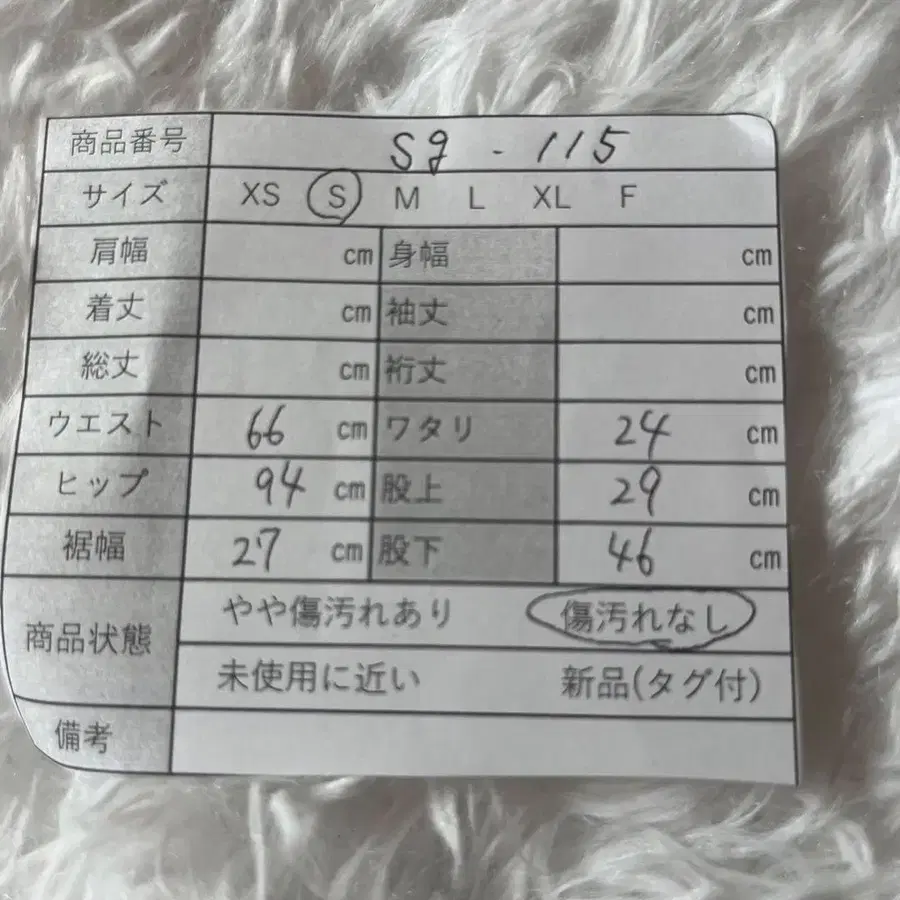 商品番号 sg - 115
サイズ XS S M L XL F
肩幅 cm 身幅 cm
着丈 cm 袖丈 cm
総丈 cm 裄丈 cm
ウエスト 66 cm ワタリ 24 cm
ヒップ 94 cm 股上 29 cm
裾幅 27 cm 股下 46 cm
商品状態 やや傷汚れあり 傷汚れなし
未使用に近い 新品(タグ付)
備考